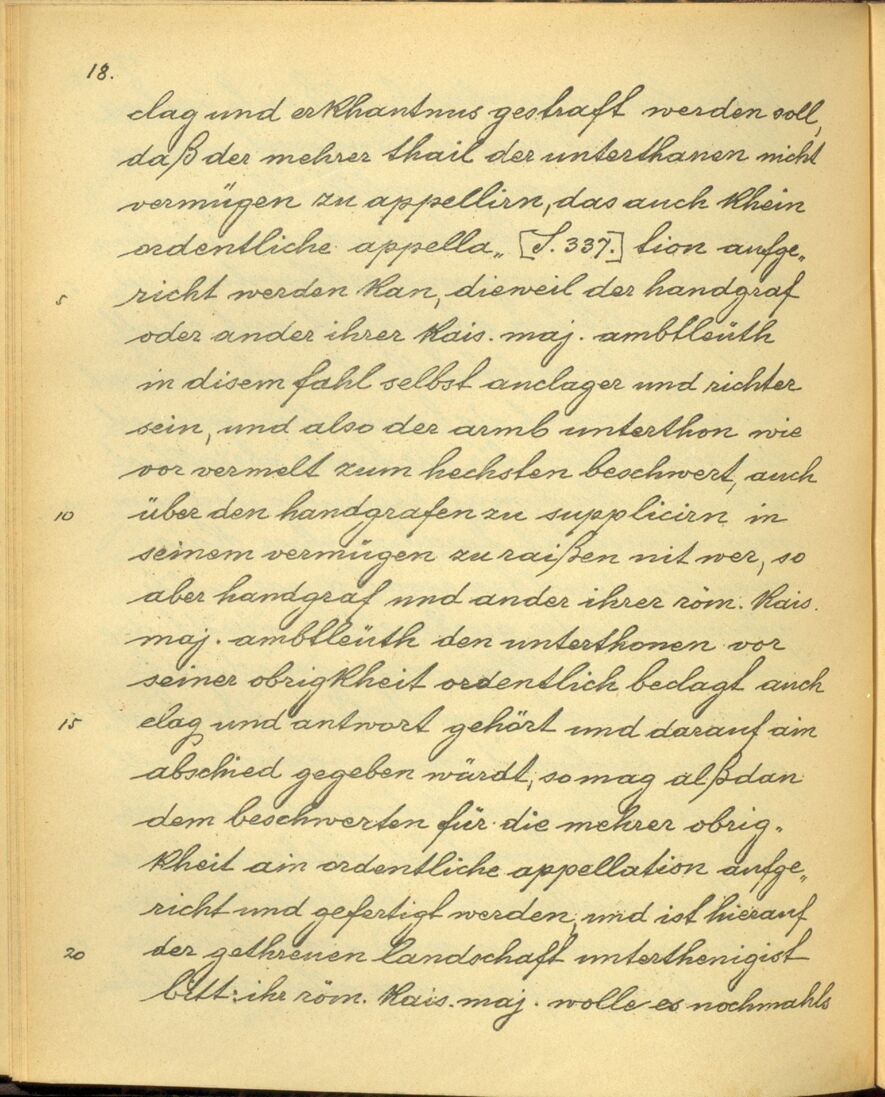 18.
clag und erkhantnus gestraft werden soll,
daß der mehrer thail der unterthanen nicht
vermügen zu appellirn, das auch khein
ordentliche appella„ [S. 337.] tion aufge„
5 richt werden kan, dieweil der handgraf
oder ander ihrer kais. maj. ambtleüth
in disem fahl selbst anclager und richter
sein, und also der armb unterthon wie
vor vermelt zum hechsten beschwert, auch
10 über den handgrafen zu supplicirn in
seinem vermügen zu raißen nit wer, so
aber handgraf und ander ihrer röm. kais.
maj. ambtleüth den unterthonen vor
seiner obrigkheit ordentlich beclagt auch
15 clag und antwort gehört und darauf ain
abschied gegeben würdt, so mag alßdan
dem beschwerten für die mehrer obrig„
kheit ain ordentliche appellation aufge„
richt und gefertigt werden, und ist hierauf
20 der gethreuen landschaft unterthenigist
bitt: ihr röm. kais. maj. wolle es nochmahls